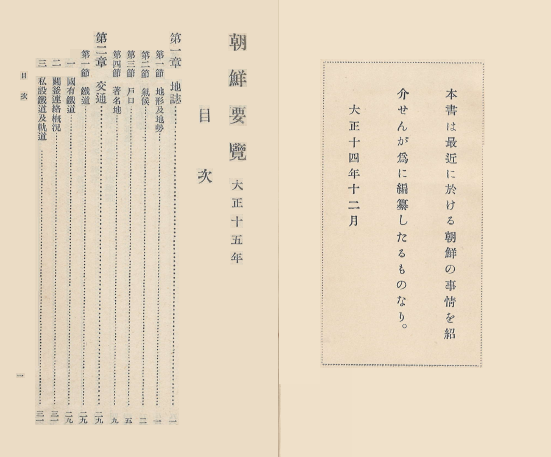 本書は最近に於ける朝鮮の事情を紹
介せんが爲に編纂したるものなり。
大正十四年十二月
朝鮮要覽 大正十五年
目次
第一章 地誌 一
第一節 地形及地勢 一
第二節 氣候 二
第三節 戶口 五
第四節 著名地 九
第二章 交通 一九
第一節 鐵道 一九
一 國有鐵道 一九
二 關釜連絡槪況
三 私設鐵道及軌道
目次 一